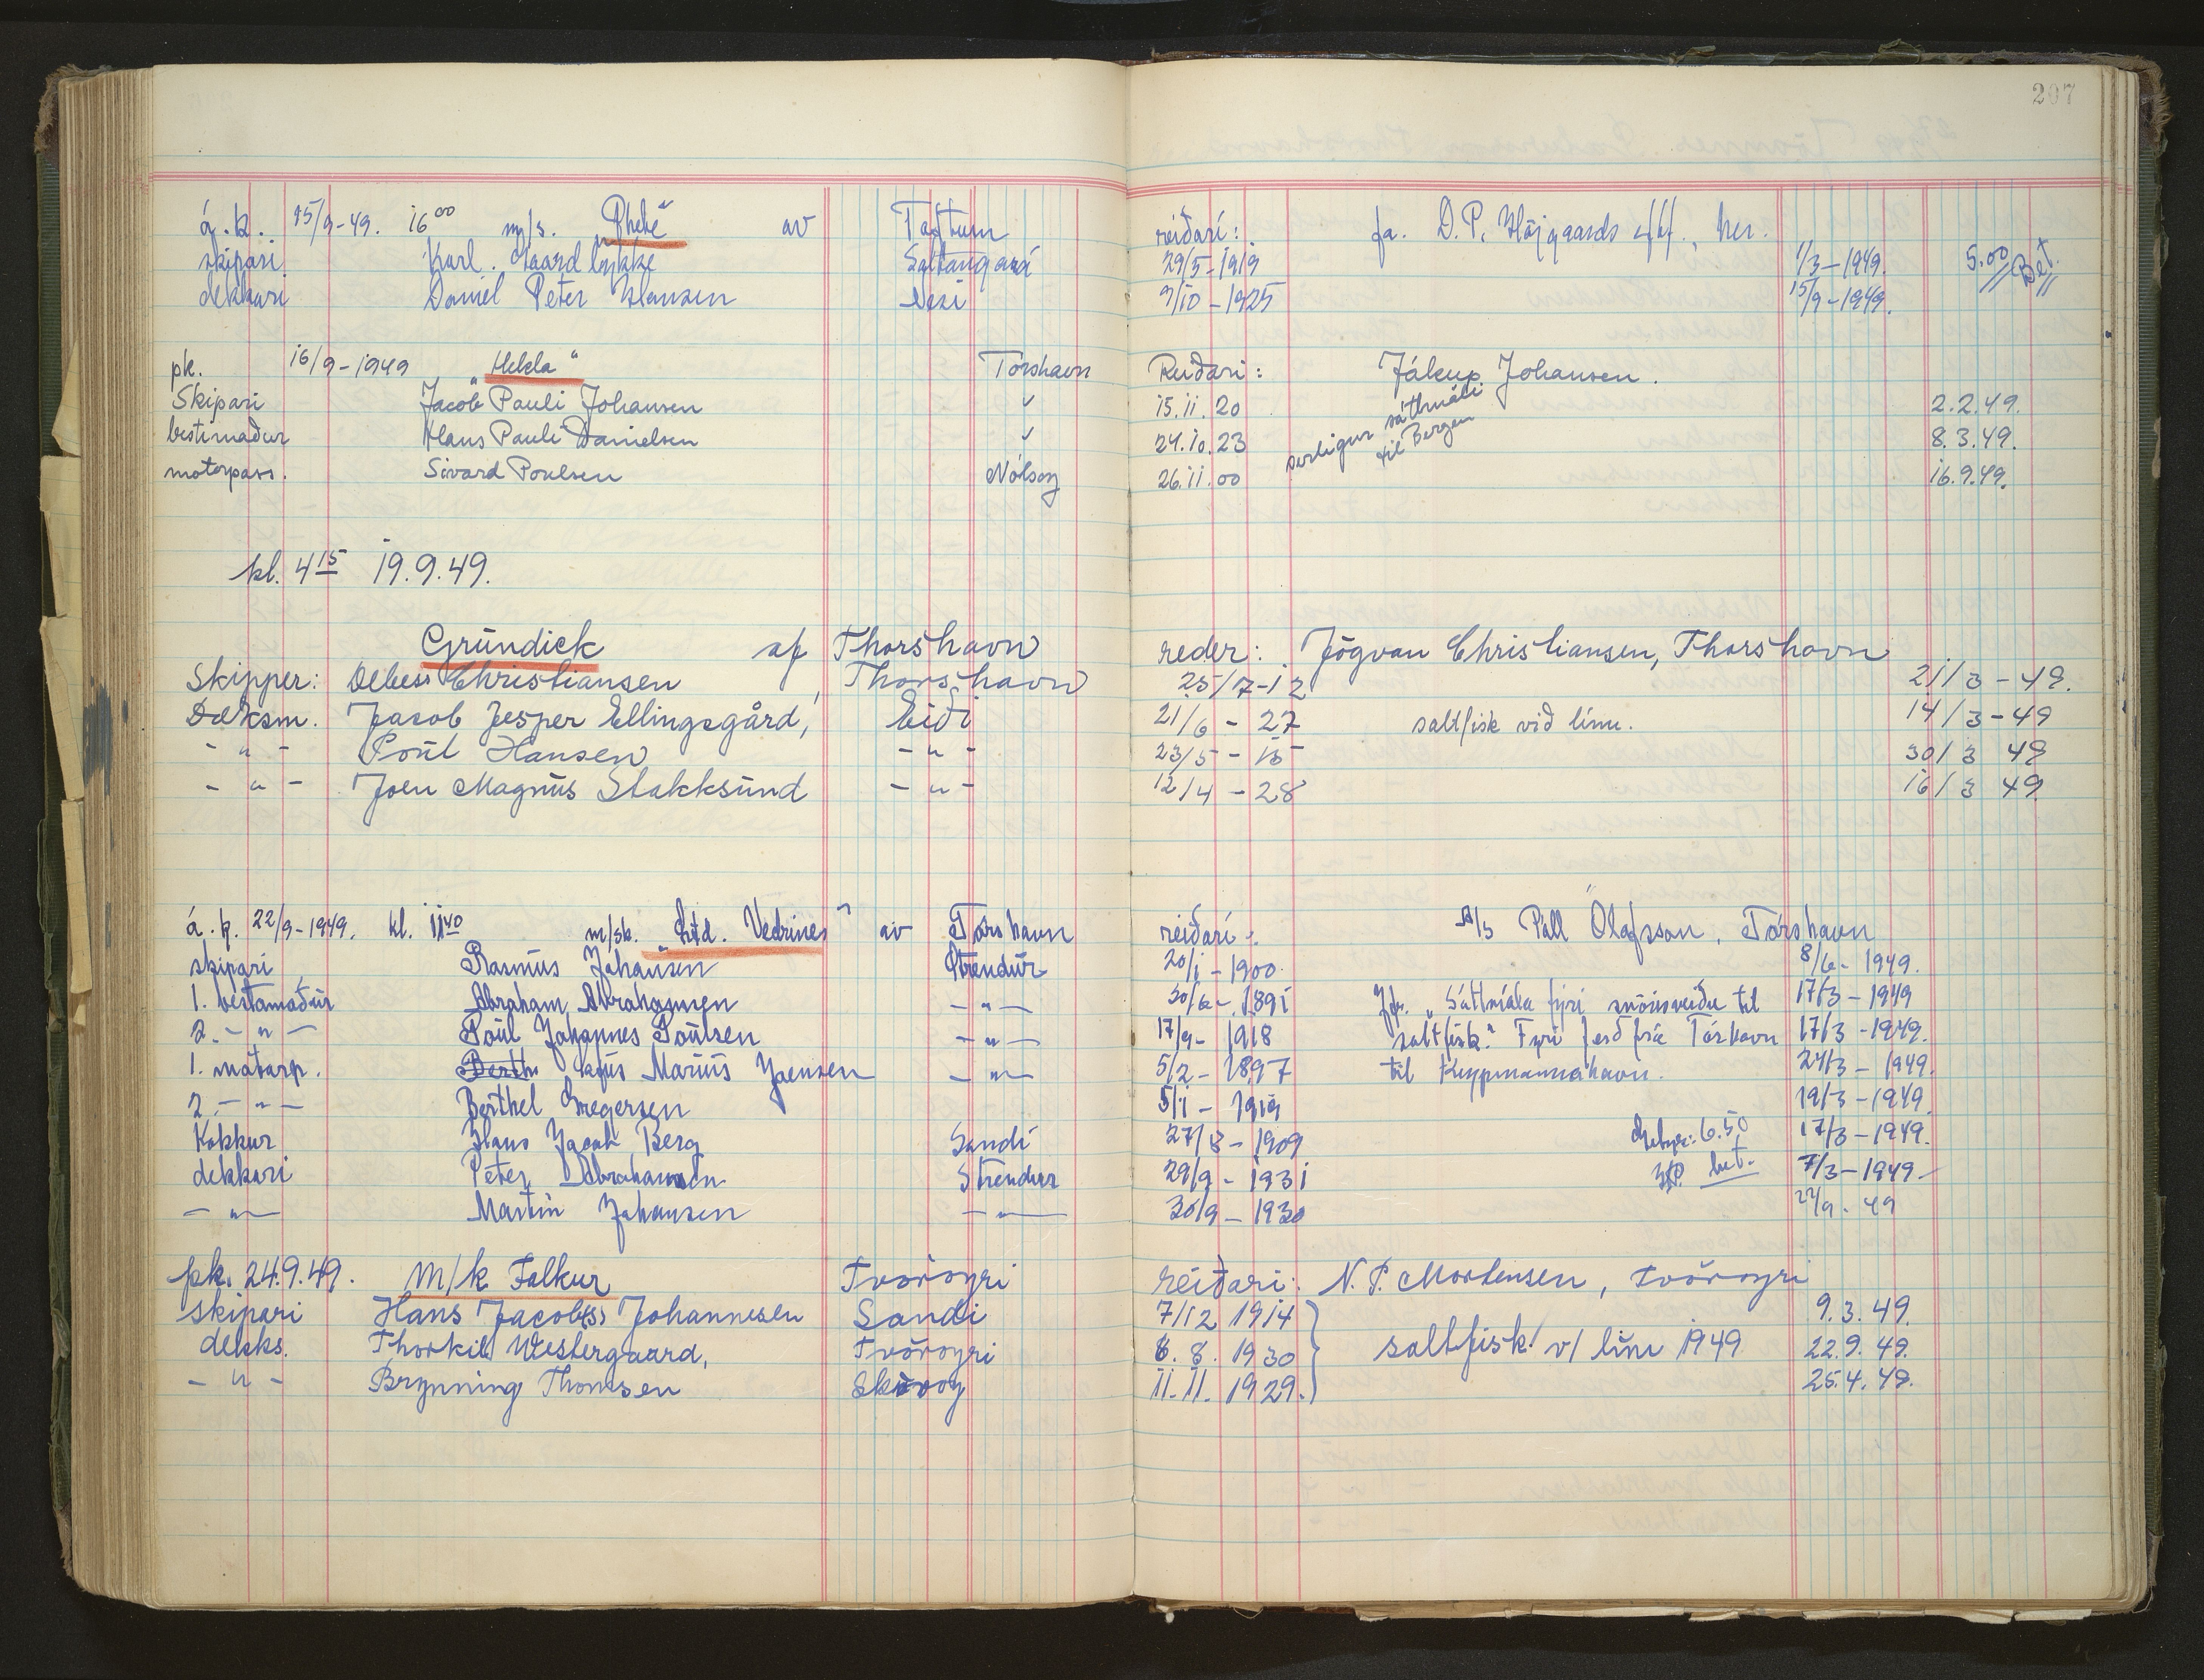 207
á.k. 15/9-49. 16 00 m/s. „Phebe" av Toftum reiðari: fa. D.P. Højgaards eftf., her.
skipari Karl Gaardlykke Saltangará 29/5-1919 1/3-1949. 5.00 Bet.
dekkari Daniel Peter Hansen Nesi 9/10-1925 15/9-1949.
pk. 16/9-1949 „Hekla" Tórshavn Reiðari: Jákup Johansen.
Skipari Jacob Pauli Johansen 15.11.20 serligur sáttmáli 2.2.49.
bestimaður Hans Pauli Danielsen 24.10.23 til Bergen 8.3.49.
motorpass. Sivard Poulsen Nólsoy 26.11.00 16.9.49.
kl. 4 15 19.9.49.
Grundick af Thorshavn reder: Jógvan Christiansen, Thorshavn
Skipper: Debess Christiansen, Thorshavn 25/7-12 21/3-49.
Dæksm. Jacob Jesper Ellingsgård, Eiði 21/6-27 saltfisk við línu. 14/3-49
-"- Poul Hansen -"- 23/5-15 30/3 49
-"- Joen Magnus Stakksund -"- 12/4-28 16/3 49
á.k. 22/9-1949. kl. 11 40 m/sk. „Ltd. Vedrines" av Tórshavn reiðari: A/S Páll Ólafsson, Tórshavn
skipari Rasmus Johansen Strendur 20/1-1900 8/6-1949.
1. bestamaður Abraham Abrahamsen -"- 30/6-1891 Jfr. „Sáttmála fyri snörisveiðu til 17/3-1949
2. -"- Poul Johannes Poulsen -"- 17/9-1918 saltfisk." Fyri ferð frá Tórshavn 17/3-1949.
1. motorp. Berth Marius Joensen -"- 5/2-1897 til Keypmannahavn. 24/3-1949.
2. -"- Berthel Gregersen 5/1-1919 19/3-1949
Kokkur Hans Jacob Berg Sandi 27/8-1909 Gebyr: 6.50 17/3-1949.
dekkari Peter Abrahamsen Strendur 29/9-1931 bet. 7/3-1949-
-"- Martin Johansen -"- 30/9-1930 22/9-49
pk. 24.9.49. M/k Falkur Tvöroyri reiðari: N.P. Mortensen, Tvöroyri
skipari Hans Jacob(s) Johannesen Sandi 7/12 1914 9.3.49.
dekks. Thorkil Westergaard, Tvöroyri 8.8.1930 saltfisk v/ línu 1949 22.9.49.
-"- Brynning Thomsen Skúvoy 11.11.1929. 25.4.49.